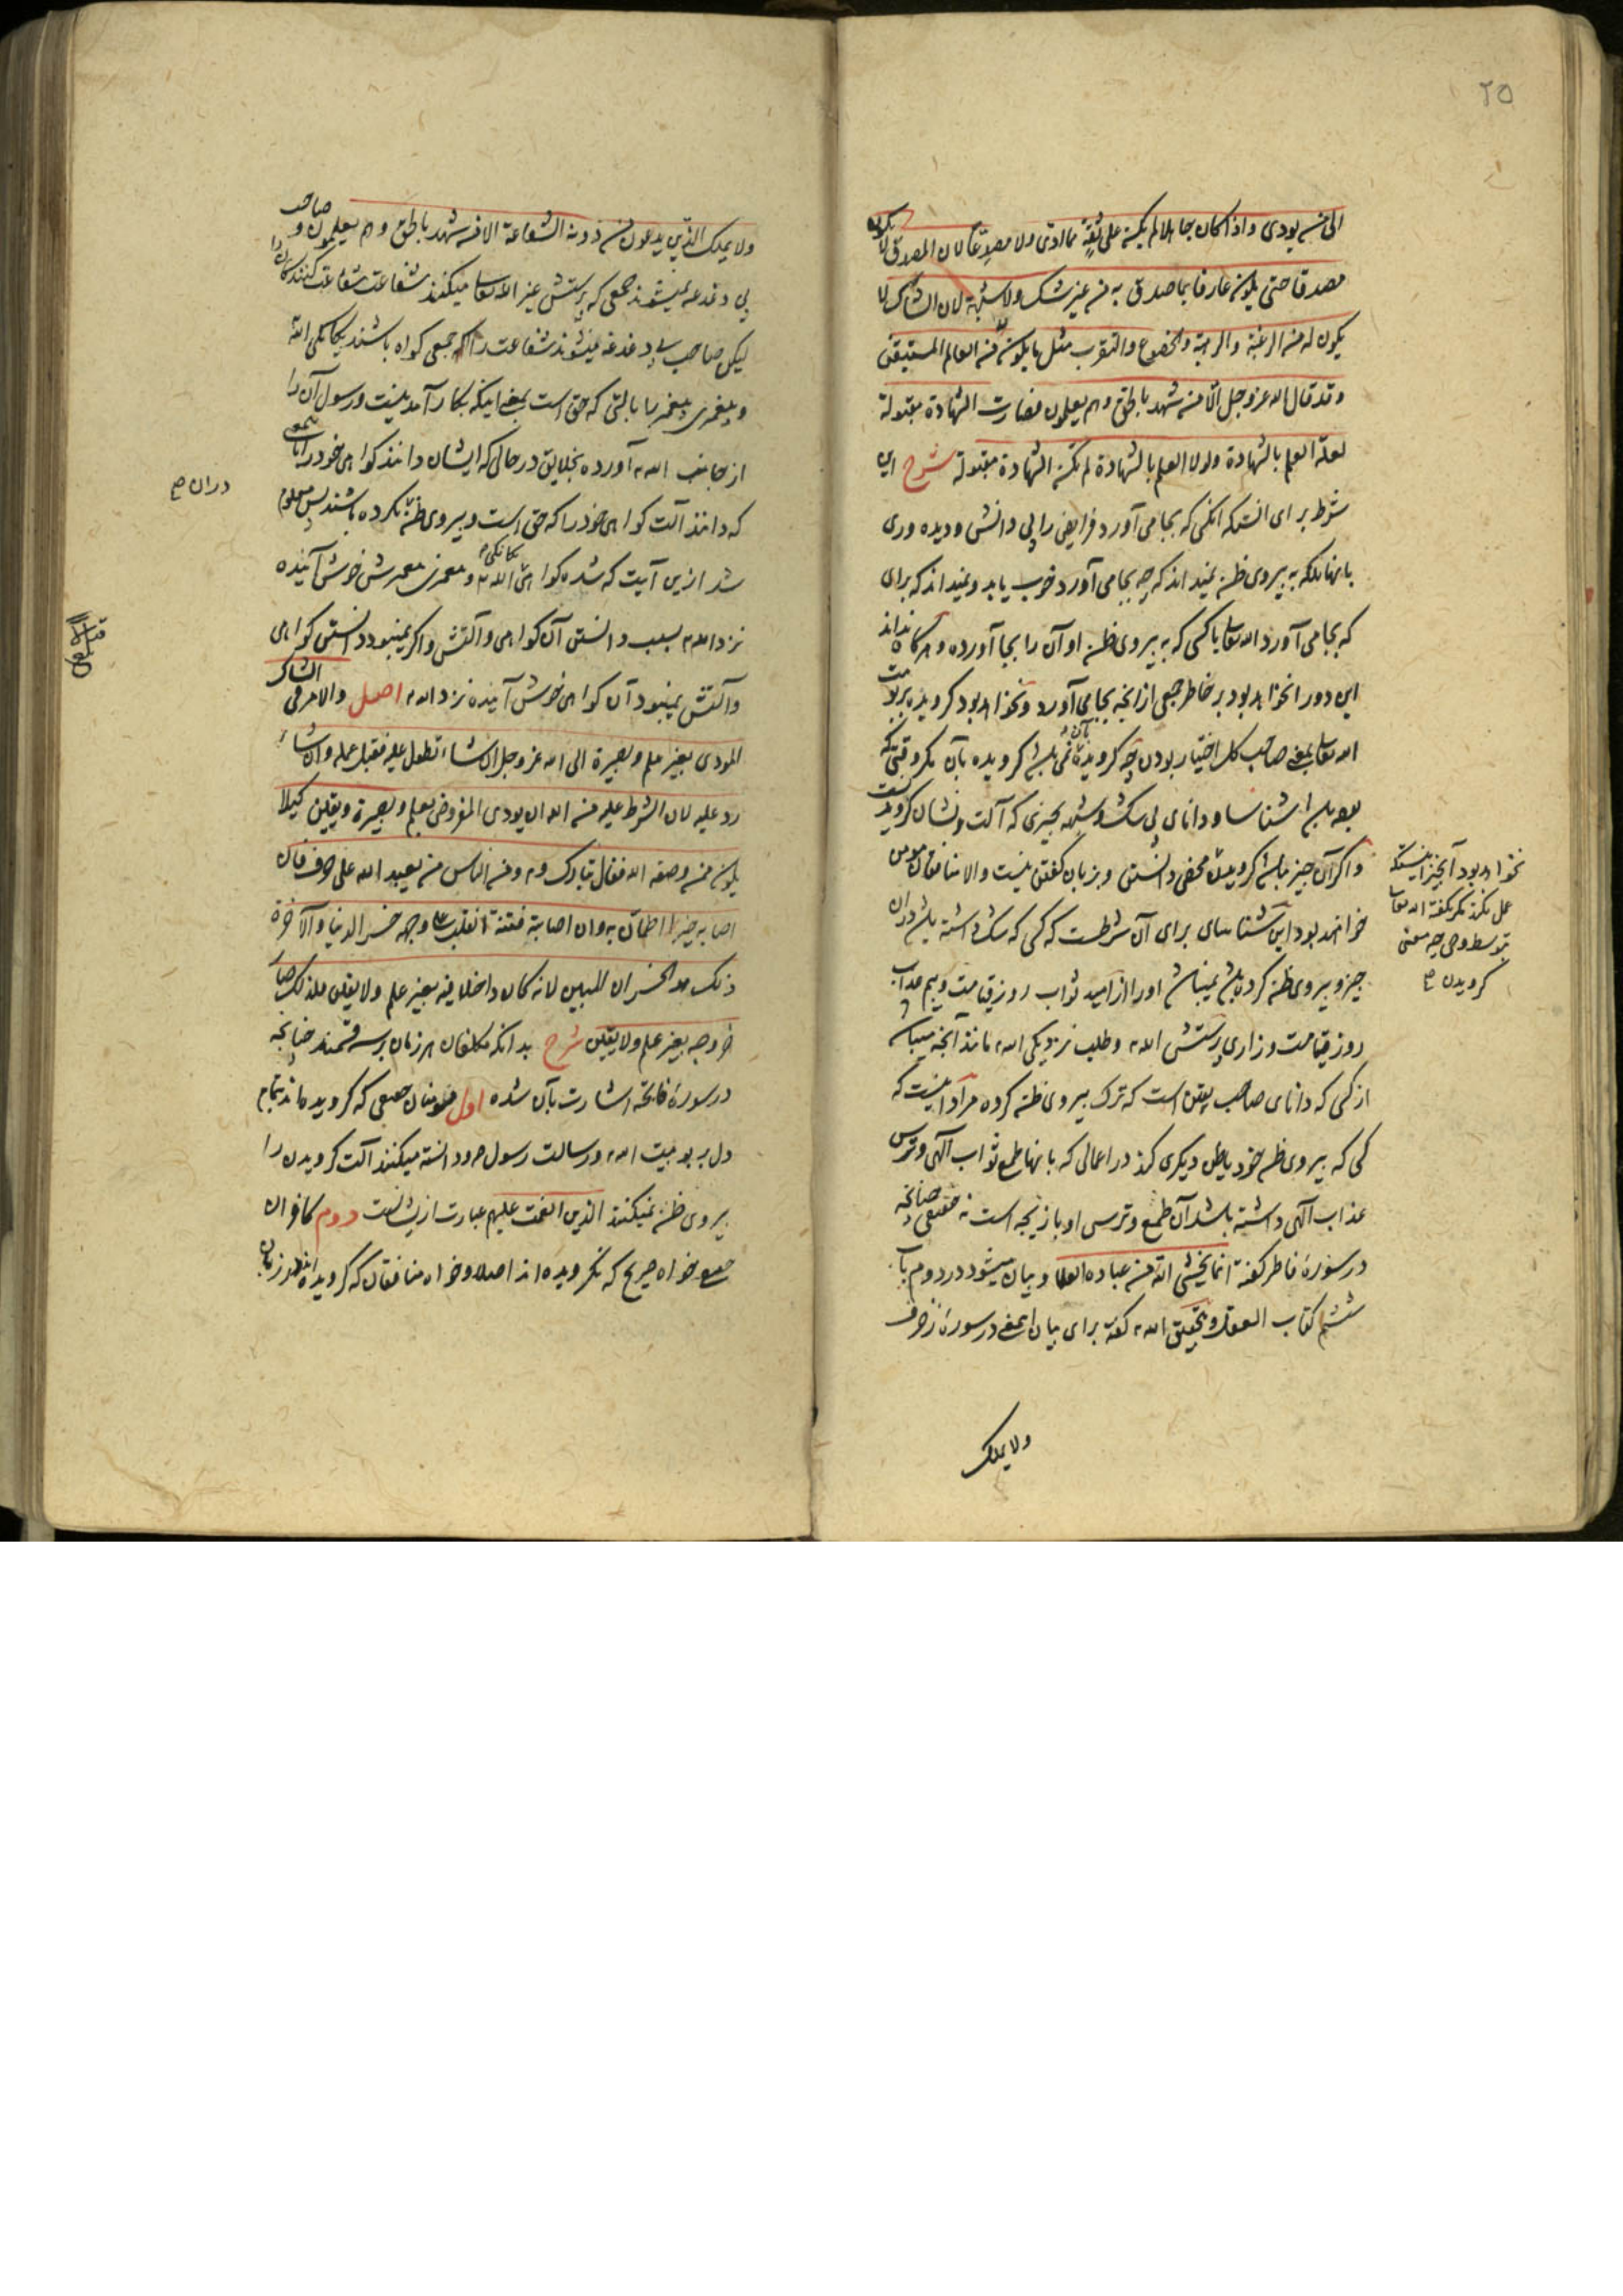 ۲۵
الی من یودی و اذا کان جاهلا لم یکن علی ثقة مما ادی ولا مصدقا لان المصدق لا یکون
مصدقا حتی یکون عارفا بما صدق به من غیر شک ولا شبهة لان الشاک لا
یکون له من الرغبة والرهبة والخضوع والتقرب مثل ما یکون من العالم المستیقن
وقد قال الله عزوجل الا من شهد بالحق وهم یعلمون فصارت الشهادة مقبولة
لعلة العلم بالشهادة ولولا العلم بالشهادة لم تکن الشهادة مقبولة شرح این
شرط برای انست که انکس که بجا می آورد فرایض را بی دانش و دیده وری
بانها بلکه به پیروی ظن نمیداند که چه بجا می آورد خوب یا بد و نمیداند که برای
که بجا می آورد الله تعالی یا کسی که به پیروی ظن او آن را بجا آورده و هرگاه نداند
این دو را نخواهد بود بر خاطر جمعی ازانچه بجا می آورد و نخواهد بود کرویده بربوبیت
الله تعالی بمعنی صاحب کل اختیار بودن چه کرویده بآن نمی باشد کرویده بآن مکر وقتی که
بوده باشد شناسا و دانای بی شک و شبهه بچیزی که آلت و نشان کرویدنست
و اکر آن چیز نباشد کرویدن محض دانستن و بزبان گفتن نیست والا منافقان مومن
خواهند بود این شناسای برای آن شرطست که کسی که شک داشته باشد دران
چیز و پیروی ظن کرده باشد نمیباشد او را از امید ثواب روز قیامت و بیم عذاب
روز قیامت و زاری پرستش الله و طلب نزدیکی الله مانند آنچه میباشد
از کسی که دانای صاحب یقین است که ترک پیروی ظن کرده مراد اینست که
کسی که پیروی ظن خود یا ظن دیکری کند در اعمالی که بانها طمع ثواب آلهی و ترس
عذاب آلهی داشته باشد آن طمع و ترسی او بازیچه است نه حقیقی چنانچه
در سورهٔ فاطر کفته انما یخشی الله من عباده العلماء و بیان میشود در دوم باب
ششم کتاب العقل و بتحقیق الله کفته برای بیان این معنی در سورهٔ زخرف
ولا یملک
نخواهد بود آنچیز اینستکه
عمل نکرد مکر بکفته الله تعالی
بتوسط وحی چه معنی
کرویدن
ولا یملک الذین یدعون من دونه الشفاعة الا من شهد بالحق وهم یعلمون و صاحب
بی دغدغه نمیشوند جمعی که پرستش غیر الله تعالی میکنند شفاعت شفاعت کنندکان را
لیکن صاحب بی دغدغه میشوند شفاعت را جمعی که کواه باشند بیکانکی الله
و پیغمبری پیغمبر با بالتی که حق است بمعنی اینکه بکار آمدنیست و رسول آن را
از جانب الله آورده بخلایق در حالی که ایشان دانند کواهی خود را بمعنی
که دانند آلت کواهی خود را که حق است و پیروی ظن نکرده باشند پس معلوم
شد ازین آیت که شده کواهی یکانکی الله و پیغمبری پیغمبرش خوش آینده
نزد الله بسبب دانستن آن کواهی و آلتش و اکر نمیبود دانستن کواهی
وآلتش نمیبود آن کواهی خوش آینده نزد الله اصل والامر فی الشاک
المودی بغیر علم وبصیرة الی الله عزوجل ان شاء تطول علیه فقبل عمله وان شاء
رد علیه لان الشرط علیه من الله ان یودی المفروض بعلم وبصیرة ویقین کیلا
یکون ممن وصفه الله فقال تبارک و ومن الناس من یعبد الله علی حرف فان
اصابه خیرا اطمان به وان اصابته فتنة انقلب علی وجهه خسر الدنیا والآخرة
ذلک هو الخسران المبین لانه کان داخلا فیه بغیر علم ولا یقین فلذلک صار
خروجه بغیر علم ولا یقین شرح بدانکه مکلفان هر زمان برسه قسمند چنانچه
در سورهٔ فاتحه اشارت بآن شده اول مومنان جمعی که کرویده اند بتمام
دل بربوبیت الله و رسالت رسول و دانسته میکنند آلت کرویدن را
پیروی ظن نمیکنند الذین انعمت علیهم عبارت ازیشانست دوم کافران
جمعی خواه صریح که نکرویده اند اصلا و خواه منافقان که کرویده اند بزبان
دران
یکانکی